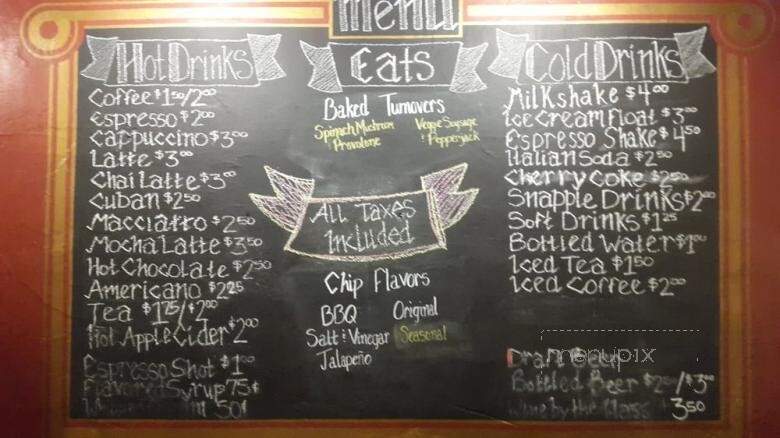 Menu
Hot Drinks
Coffee $1.50/2.00
Espresso $2.00
Cappuccino $3.00
Latte $3.00
Chai Latte $3.00
Cuban $2.50
Macciatto $2.50
Mocha Latte $3.50
Hot Chocolate $2.50
Americano $2.25
Tea $1.25/$2.00
Hot Apple Cider $2.00
Espresso Shot $1.00
Flavored Syrup 75¢
50¢
Eats
Baked Turnovers
Spinach Mushroom Provolone
Veggie Sausage & Pepperjack
All Taxes
Included
Chip Flavors
BBQ Original
Salt & Vinegar Seasonal
Jalapeño
Cold Drinks
Milkshake $4.00
Ice Cream Float $3.00
Espresso Shake $4.50
Italian Soda $2.50
Cherry Coke $2.50
Snapple Drinks $2.00
Soft Drinks $1.25
Bottled Water $1.00
Iced Tea $1.50
Iced Coffee $2.00
menupix
Draft Beer
Bottled Beer $2.50/$3.00
Wine by the Glass 3.50